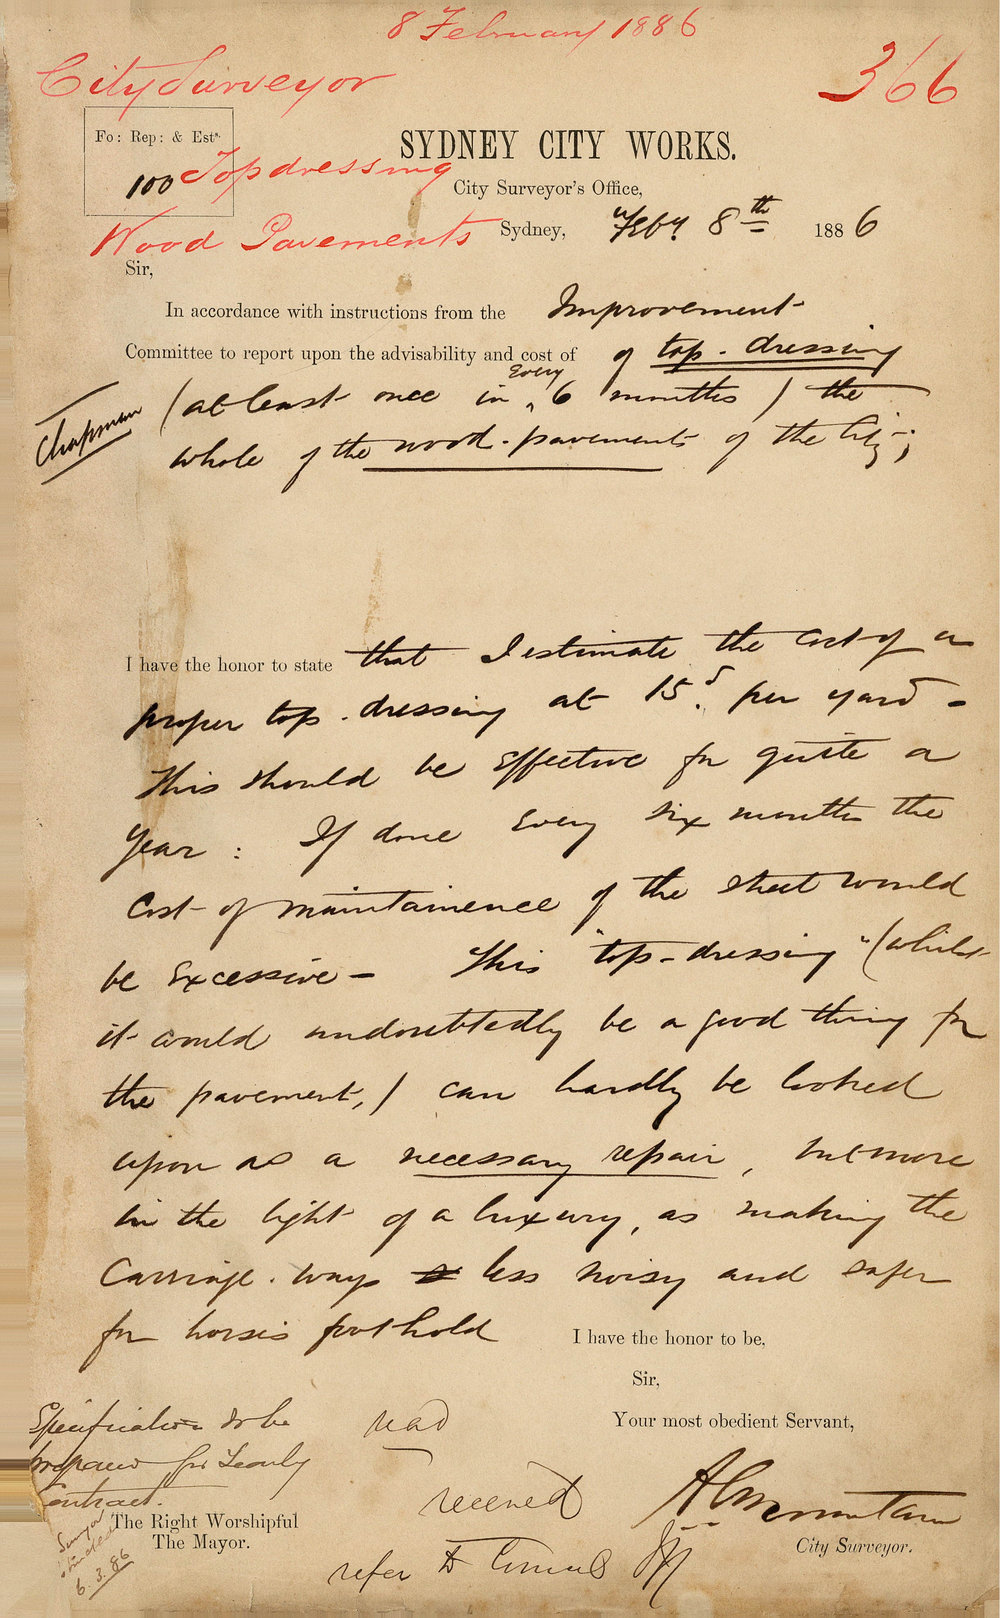 8 February 1886
City Surveyor
366
Fo: Rep: & Ests.
100
SYDNEY CITY WORKS.
Topdressing
City Surveyor's Office,
Wood Pavements
Sydney, Feby. 8th 1886
Sir,
In accordance with instructions from the Improvement
Committee to report upon the advisability and cost of of top-dressing
Chapman
(at least once in every 6 months) the
whole of the wood-pavements of the City;
I have the honor to state that I estimate the cost of a
proper top-dressing at 15d. per yard -
This should be effective for quite a
year: If done every six months the
cost of maintainence of the street would
be excessive - This "top-dressing" (whilst
it would undoubtedly be a good thing for
the pavement,) can hardly be looked
upon as a necessary repair, but more
in the light of a luxury, as making the
Carriage-ways less noisy and safer
for horses foothold
I have the honor to be,
Sir,
Your most obedient Servant,
Specification to be
prepared for Yearly
Contract.
read
received
refer to Council
A C Mountain
City Surveyor.
The Right Worshipful
The Mayor.
Surveyor
6.3.86